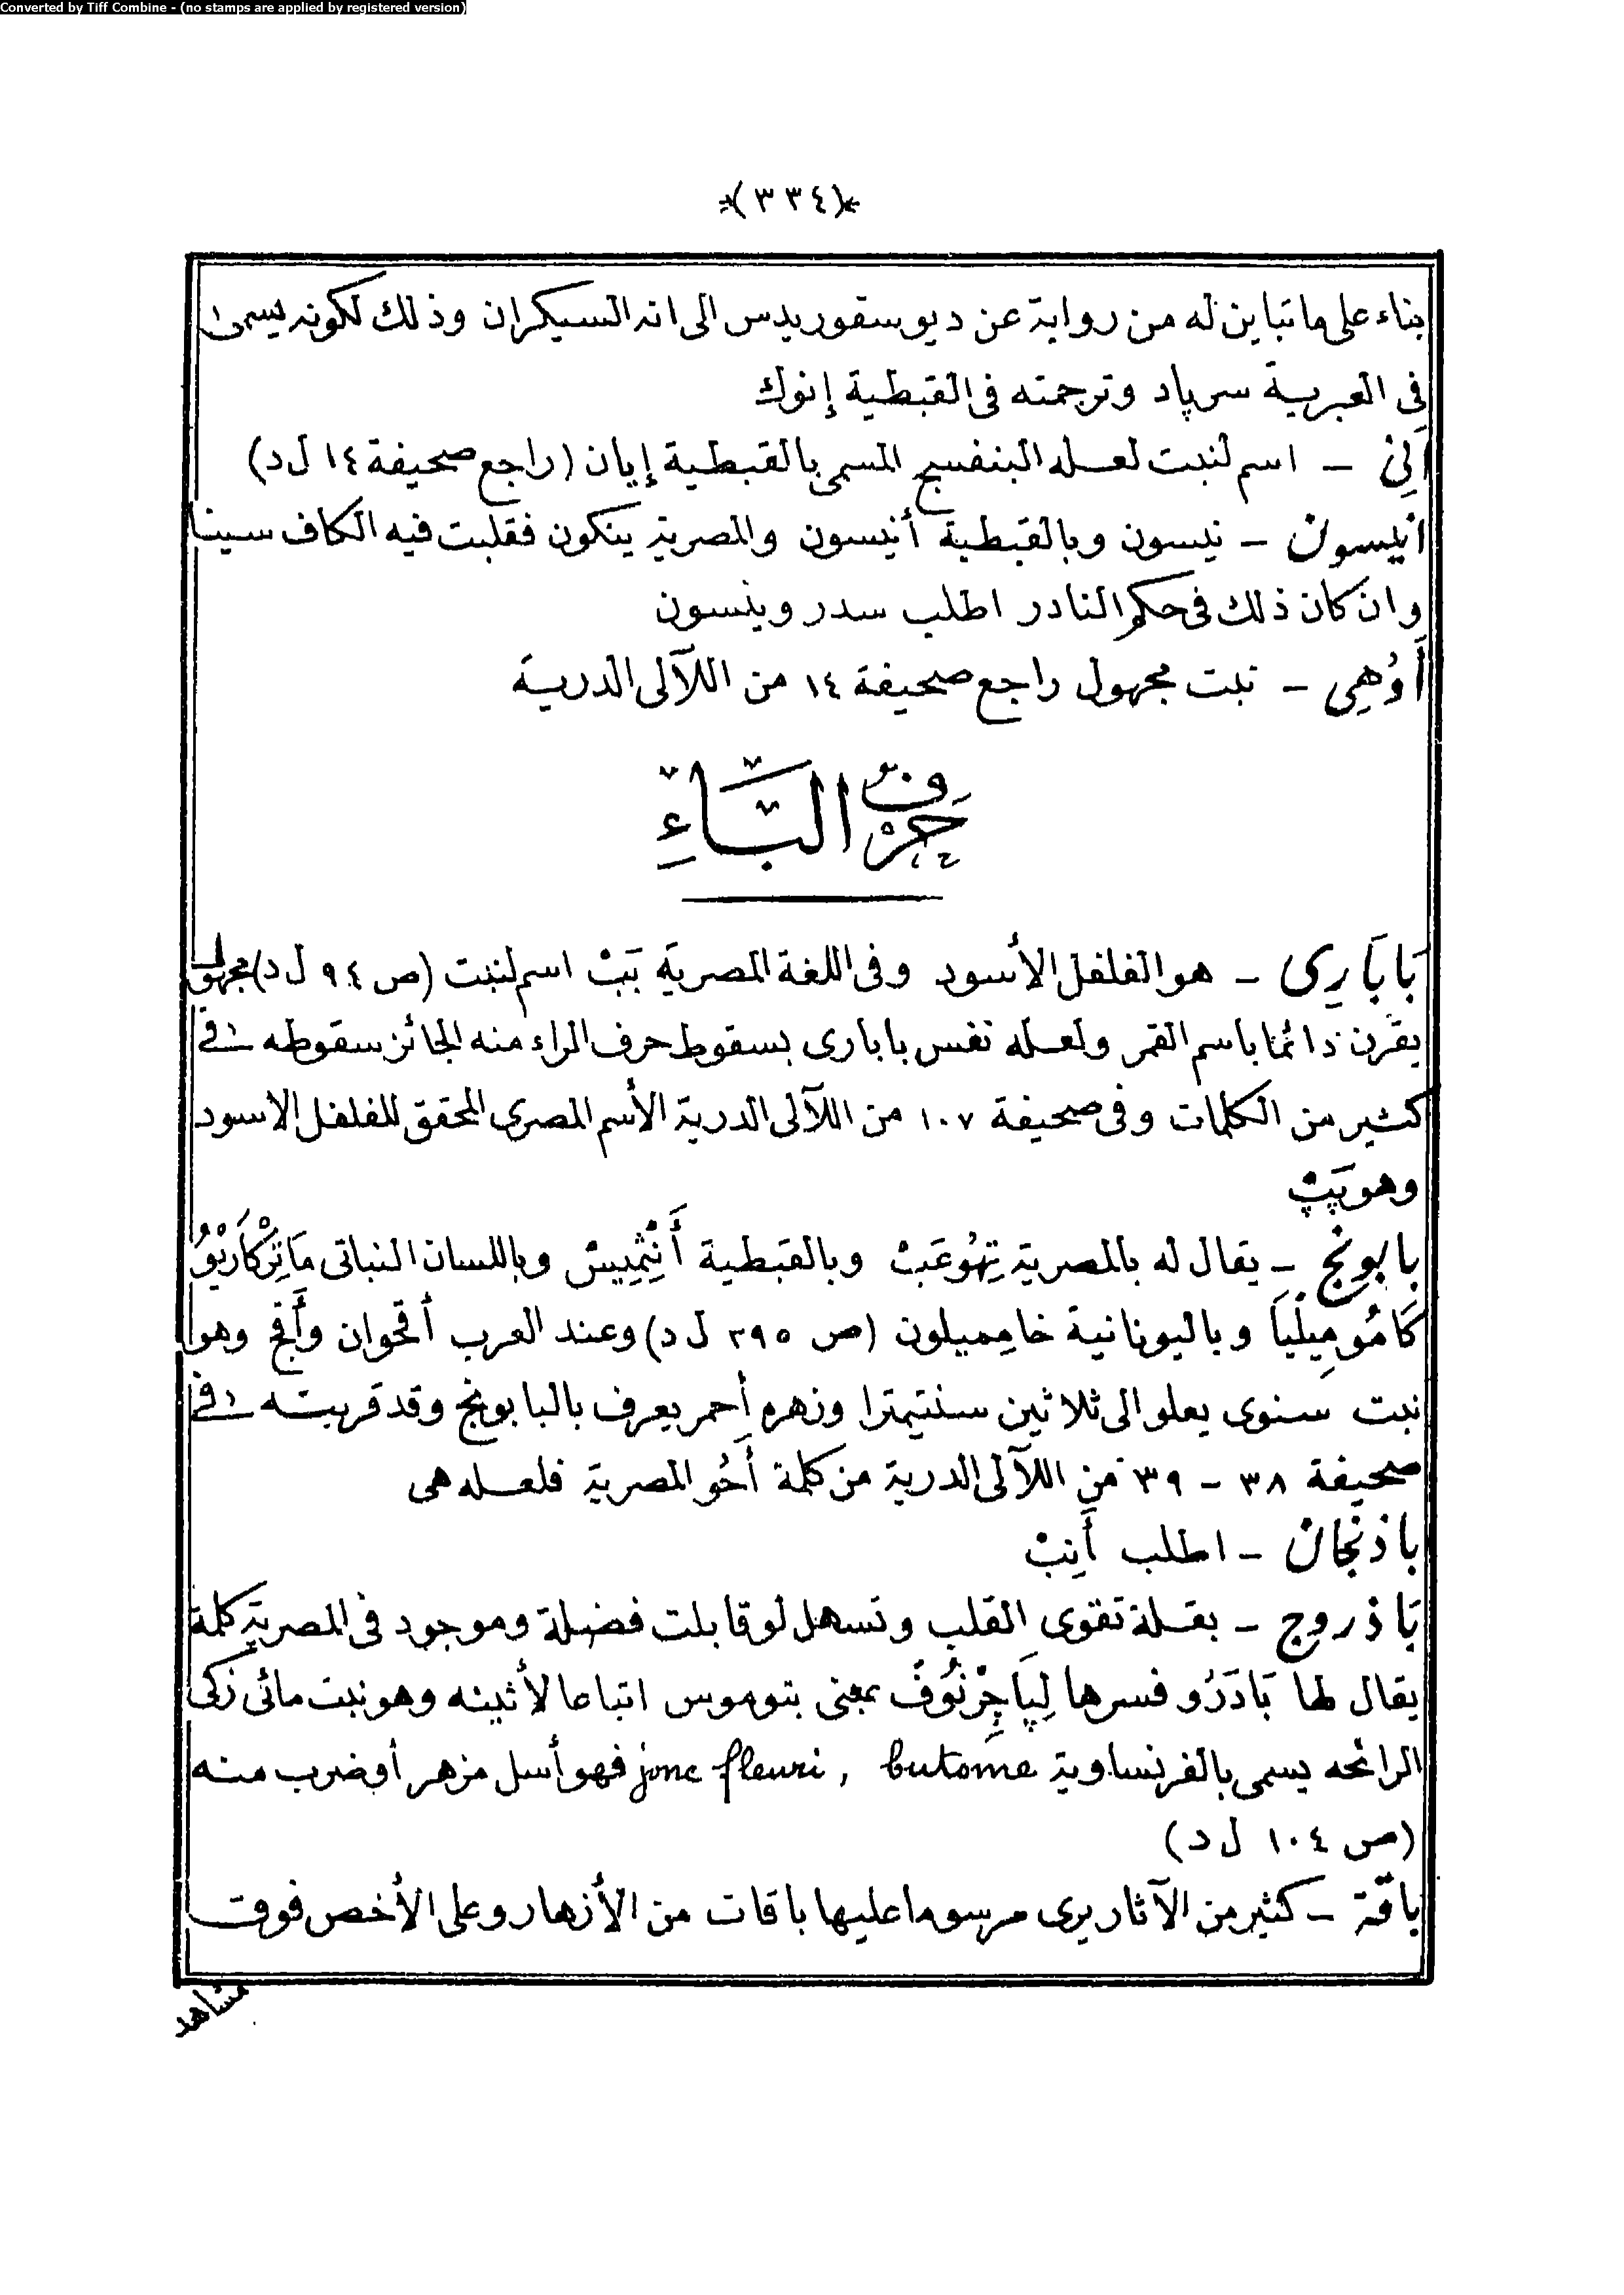 Converted by Tiff Combine - (no stamps are applied by registered version)
*(٣٣٤)*
بناء على ما تباين له من رواية عن ديوسقوريدس الى انه السيكران وذلك لكونه يسمى
فى العبرية سرپاد وترجمته فى القبطية إنوك
انى - اسم لنبت لعله البنفسج المسمى بالقبطية إيان (راجع صحيفة ١٤ ل د)
انيسون - نيسون وبالقبطية أنيسون والمصرية ينكون فقلبت فيه الكاف سينا
وان كان ذلك فى حكم النادر اطلب سدر وينسون
أوُهِى - نبت مجهول راجع صحيفة ١٤ من اللآلى الدرية
حَرْفُ البَّاءِ
بَابَارِى - هو الفلفل الأسود وفى اللغة المصرية بَبْ اسم لنبت (ص ٩٤ ل د) مجهول
يقرن دائما باسم القمر ولعله نفس بابارى بسقوط حرف الراء منه الجائز سقوطه فى
كثير من الكلمات وفى صحيفة ١٠٧ من اللآلى الدرية الأسم المصرى المحقق للفلفل الاسود
وهو پَپْ
بابونج - يقال له بالمصرية تِهُوعَبْ وبالقبطية أَنِثْمِيسْ وباللسان النباتى مَاتِرْكَارْيُو
كَامُومِيلْيَا وباليونانية خامميلون (ص ٢٩٥ ل د) وعند العرب أقحوان وأَقح وهو
نبت سنوى يعلو الى ثلاثين سنتيمترا وزهره أحمر يعرف بالبابونج وقد قربته فى
صحيفة ٣٨ - ٣٩ من اللآلى الدرية من كلمة أَحُو المصرية فلعله هى
باذنجان - اطلب أَنِبْ
بَاذروج - بقلة تقوى القلب وتسهل لو قابلت فضلة وموجود فى المصرية كلمة
يقال لها بَادَرُو فسرها لِيپاجِرْنُوفْ بمعنى بتوموس اتباعا لأثينه وهو نبت مائى زكى
الرائحه يسمى بالفرنساوية jonc fleuri, butome فهو أسل مزهر أو ضرب منه
(ص ١٠٤ ل د)
باقة - كثير من الآثار يرى مرسوما عليها باقات من الأزهار وعلى الأخص فوق
مشاهد